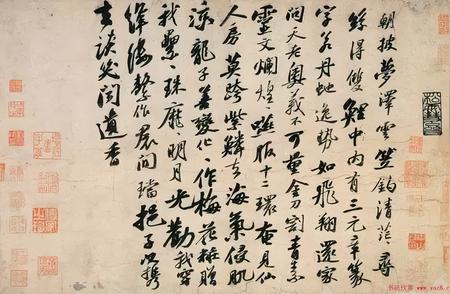 朝披夢澤雲笠釣清茫〻尋
絲得雙鯉中內有三元章篆
字若丹虵逸勢如飛翔還家
問天老奧義不可量金刀割青素
靈文爛煌〻嚥服十二環奄見仙
人房莫跨紫鱗去海氣侵肌
涼龍子善變化〻作梅花粧贈
我纍〻珠靡〻明月光勸我穿
絳縷繫作裙間璫挹子以攜
去談笑聞遺香
书法欣赏 www.yac8.com